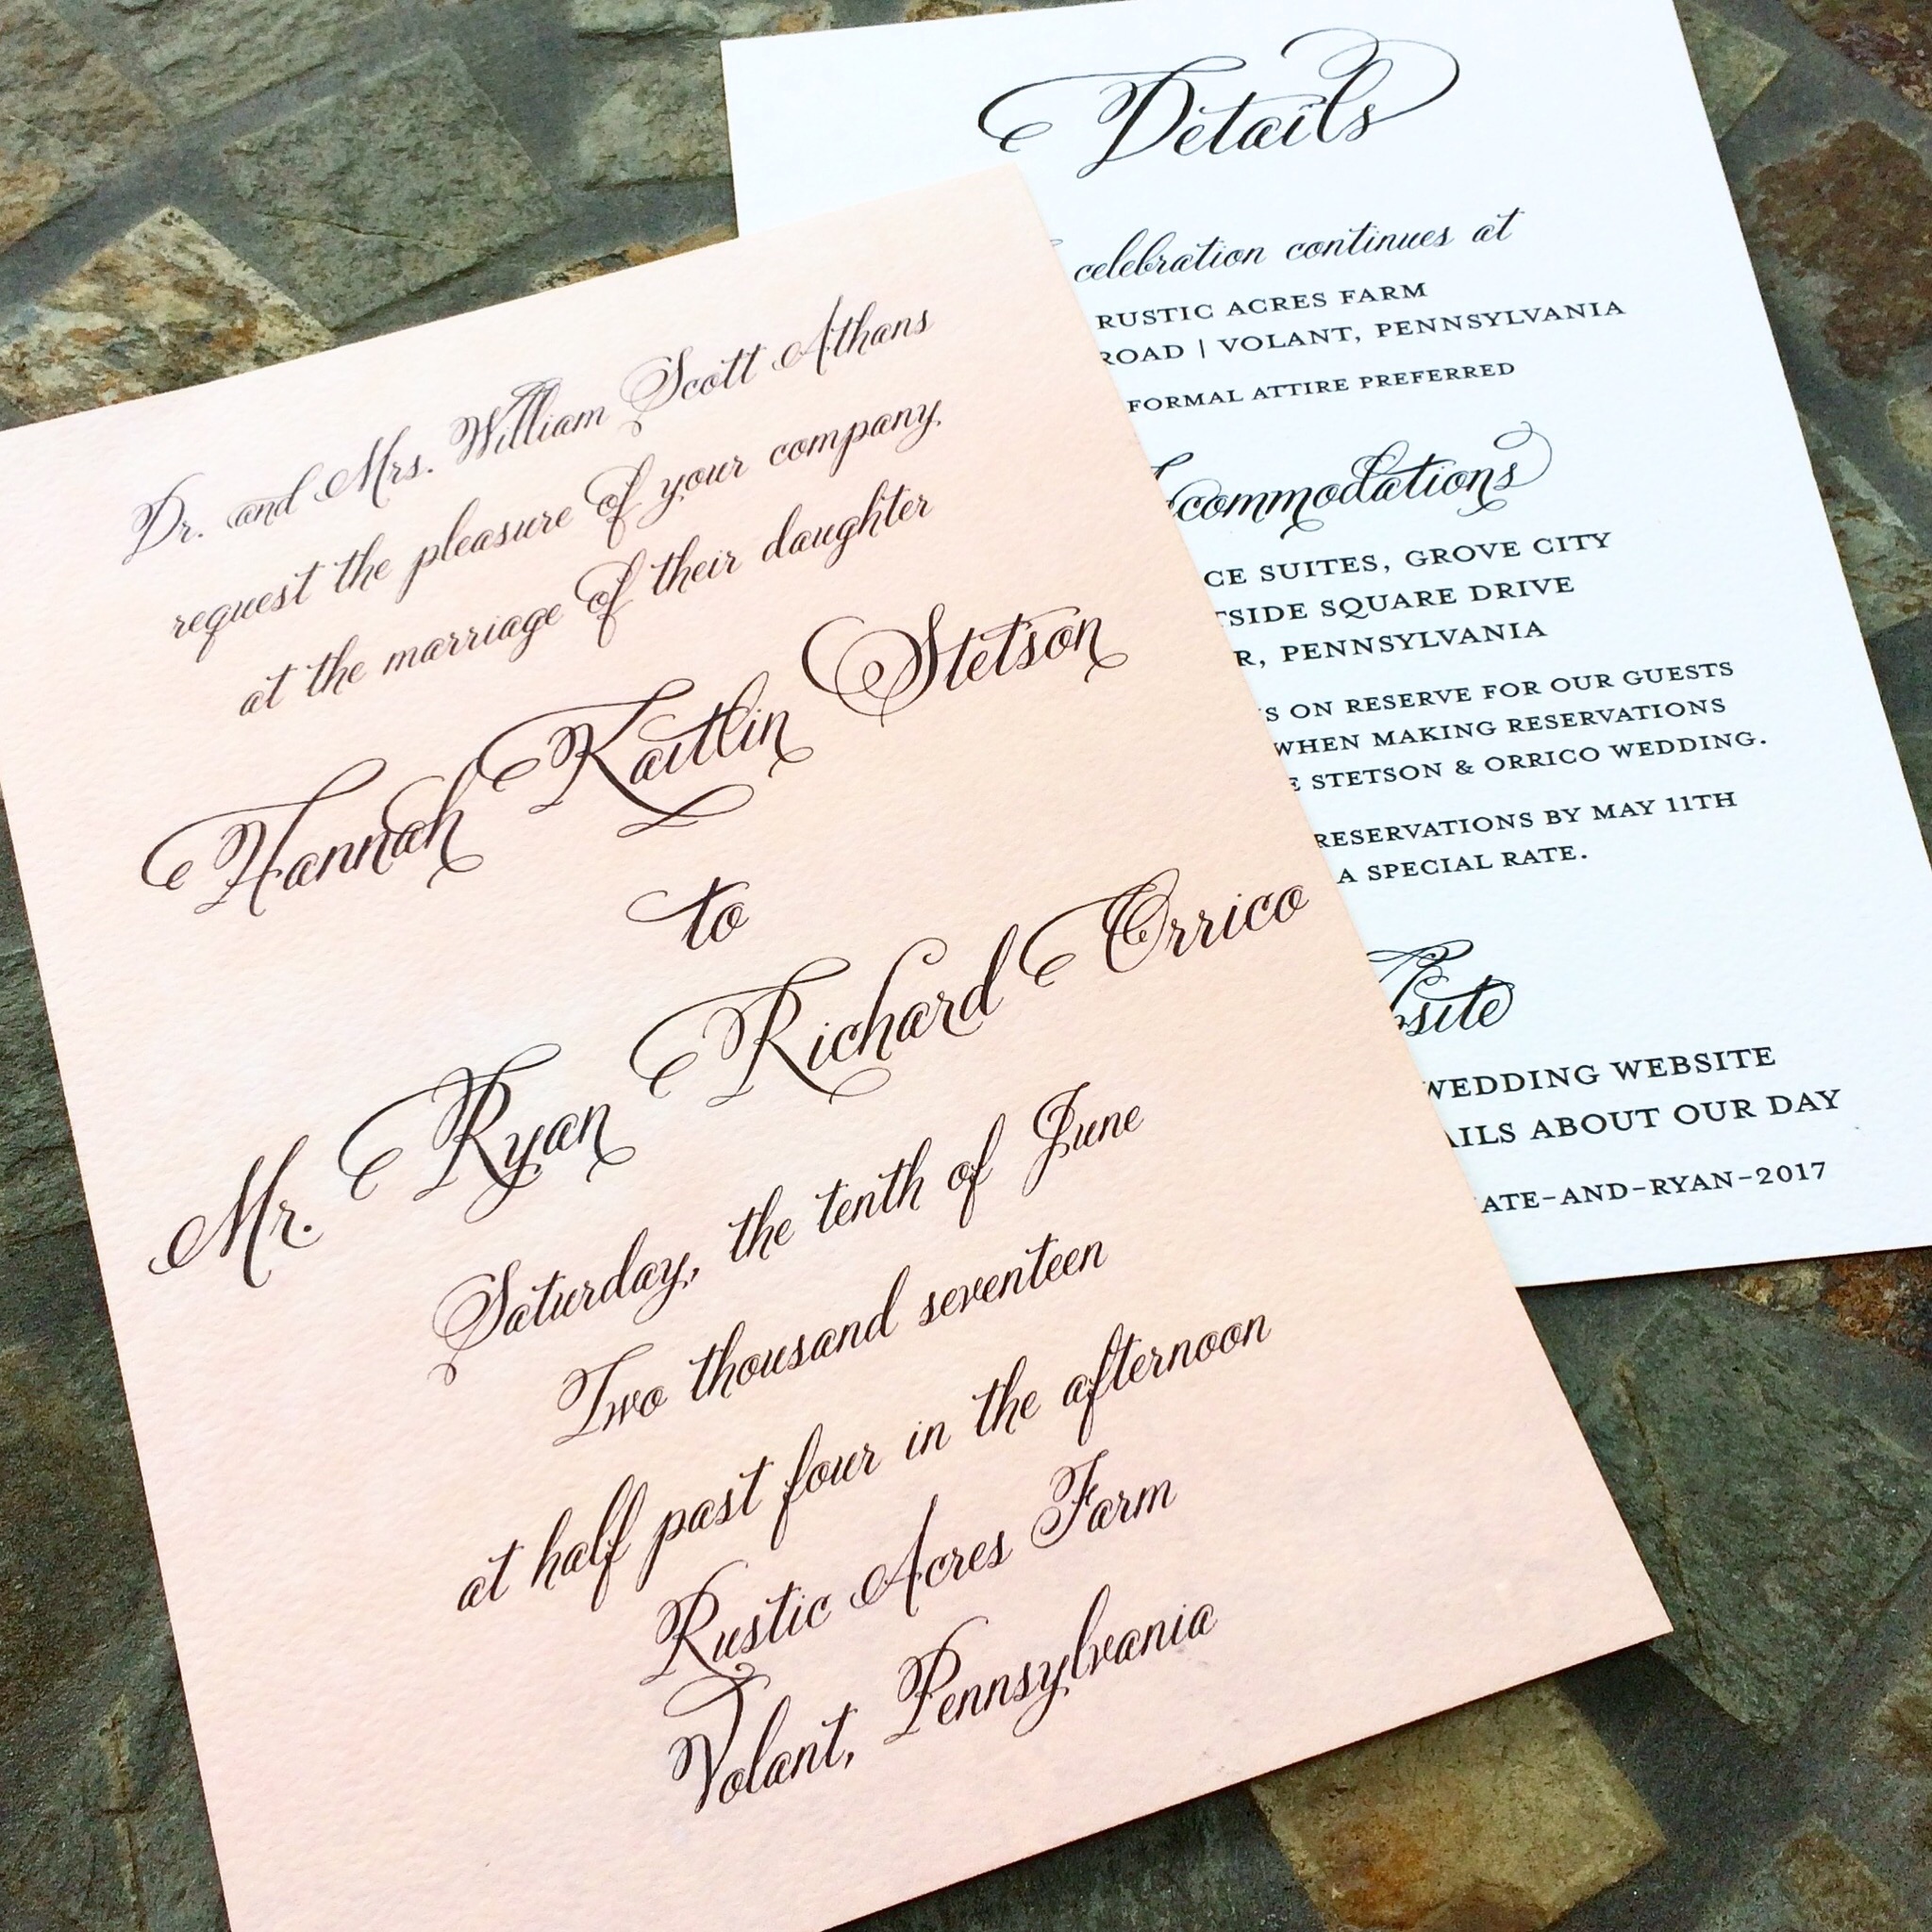 Dr. and Mrs. William Scott Athans
request the pleasure of your company,
at the marriage of their daughter
Hannah Kaitlin Stetson
to
Mr. Ryan Richard Orrico
Saturday, the tenth of June
Two thousand seventeen
at half past four in the afternoon
Rustic Acres Farm
Volant, Pennsylvania
Details
celebration continues at
RUSTIC ACRES FARM
ROAD | VOLANT, PENNSYLVANIA
FORMAL ATTIRE PREFERRED
ccommodations
CE SUITES, GROVE CITY
TSIDE SQUARE DRIVE
R, PENNSYLVANIA
S ON RESERVE FOR OUR GUESTS
WHEN MAKING RESERVATIONS
E STETSON & ORRICO WEDDING.
RESERVATIONS BY MAY 11TH
A SPECIAL RATE.
bsite
WEDDING WEBSITE
AILS ABOUT OUR DAY
ATE-AND-RYAN-2017